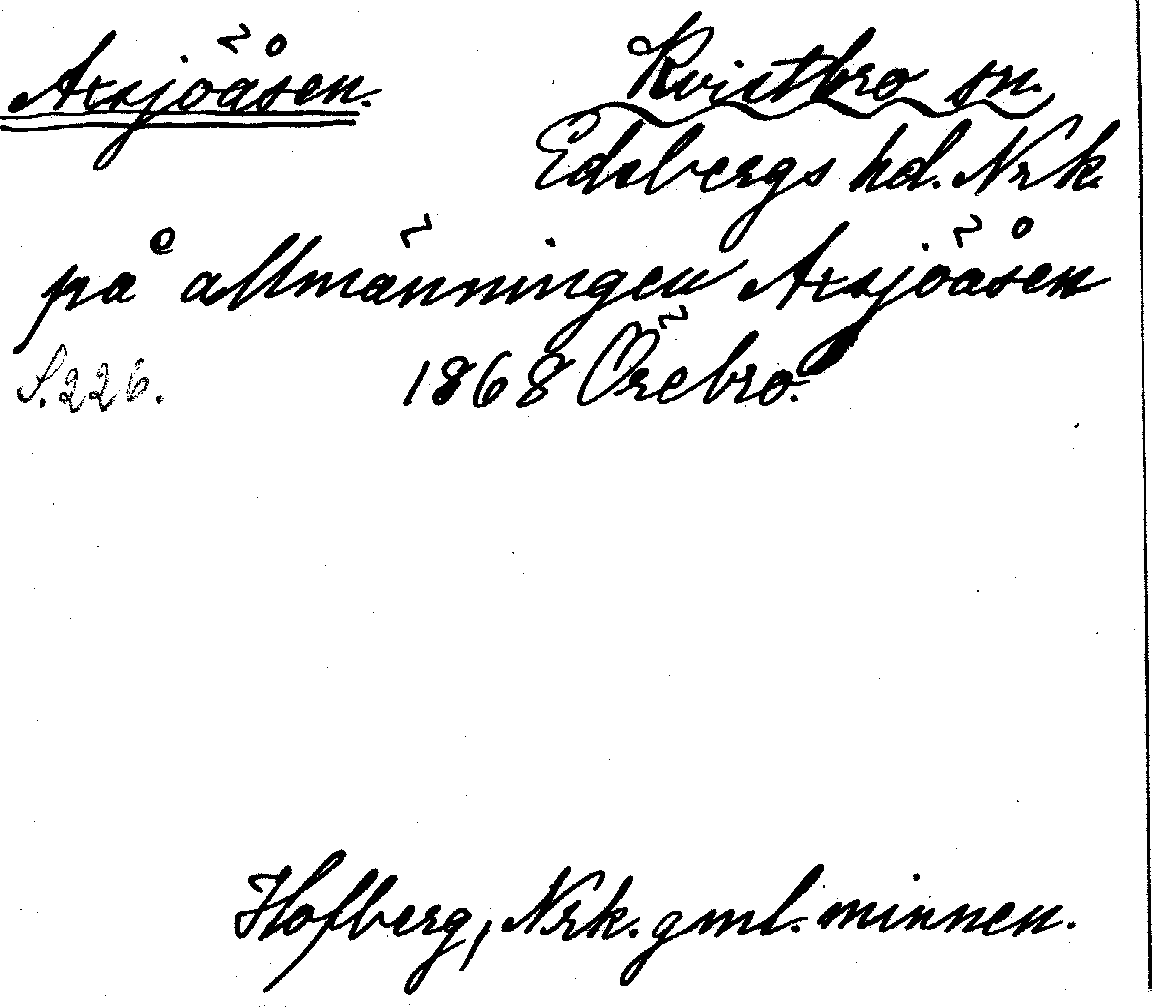 Axsjöåsen.
Kvistbro sn.
Edsbergs hd. Nrk.
på allmänningen Axsjöåsen
S. 226. 1868 Örebro.
Hofberg, Nrk. gml. minnen.